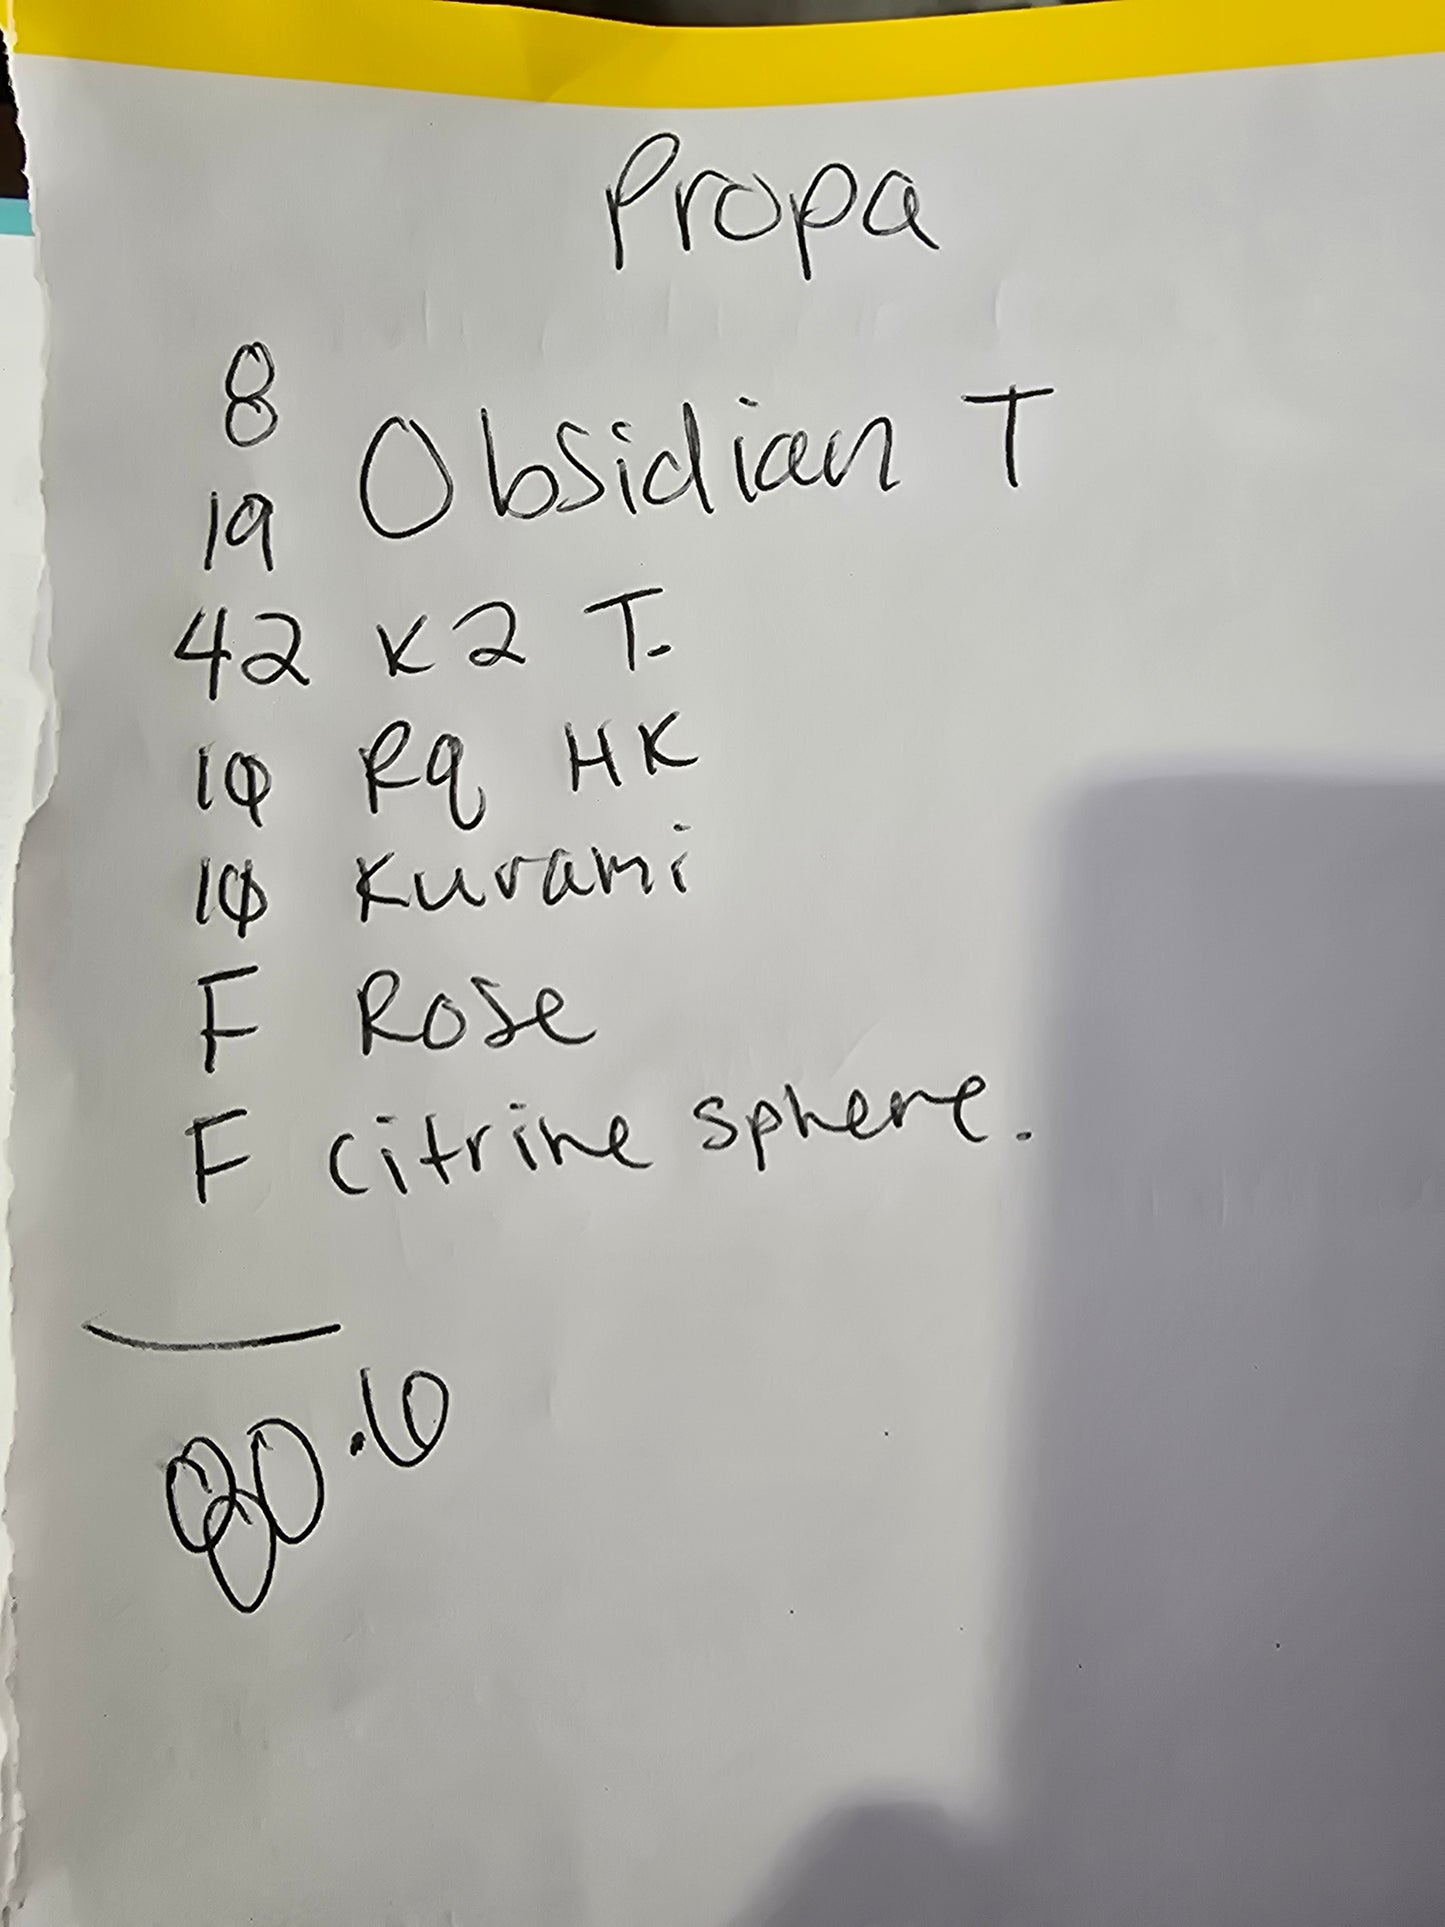 Propa
8
Obsidian T
19
42 K2 T.
10 RQ HK
10 Kurami
F Rose
F Citrine sphere.